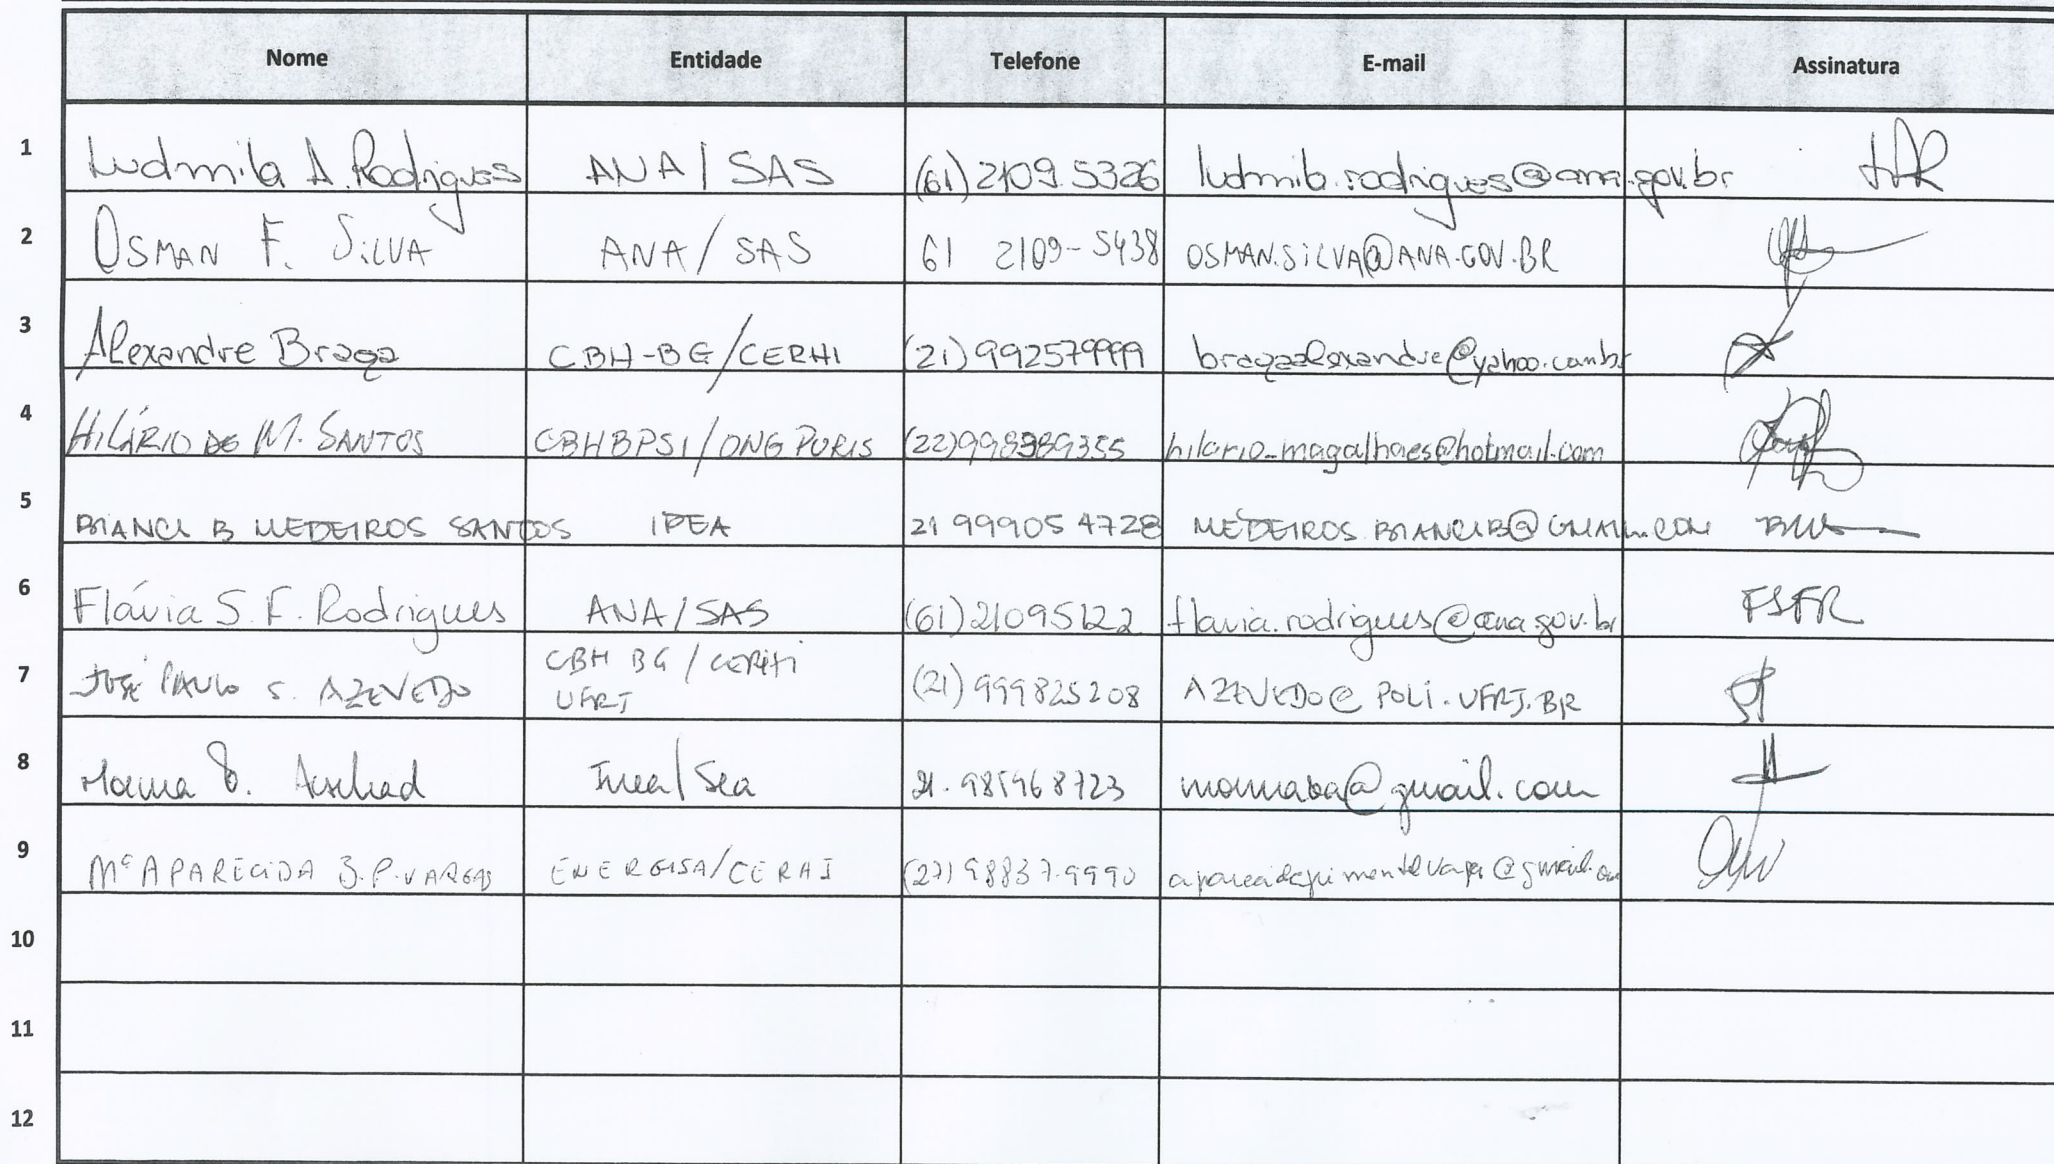 Nome Entidade Telefone E-mail Assinatura
1 Ludmila A. Rodrigues ANA / SAS (61) 2109.5326 ludmila.rodrigues@ana.gov.br
2 OSMAN F. SILVA ANA / SAS 61 2109-5438 OSMAN.SILVA@ANA.GOV.BR
3 Alexandre Braga CBH-BG/CERHI (21) 992579999 bragaalexandre@yahoo.com.br
4 HILÁRIO DE M. SANTOS CBHBPSI/ONG PURIS (22) hilario_magalhaes@hotmail.com
5 BIANCA B MEDEIROS SANTOS IPEA 21 99905 4728 MEDEIROS.BIANCAB@GMAIL.COM
6 Flávia S. F. Rodrigues ANA / SAS (61) 21095122 flavia.rodrigues@ana.gov.br FSFR
7 JOSÉ PAULO S. AZEVEDO CBH BG / CERHI
UFRJ (21) 999825208 AZEVEDO@POLI.UFRJ.BR
8 Inea/Sea
9 Mª APARECIDA B.P. VARGAS ENERGISA/CERHI 98837.9990
10
11
12